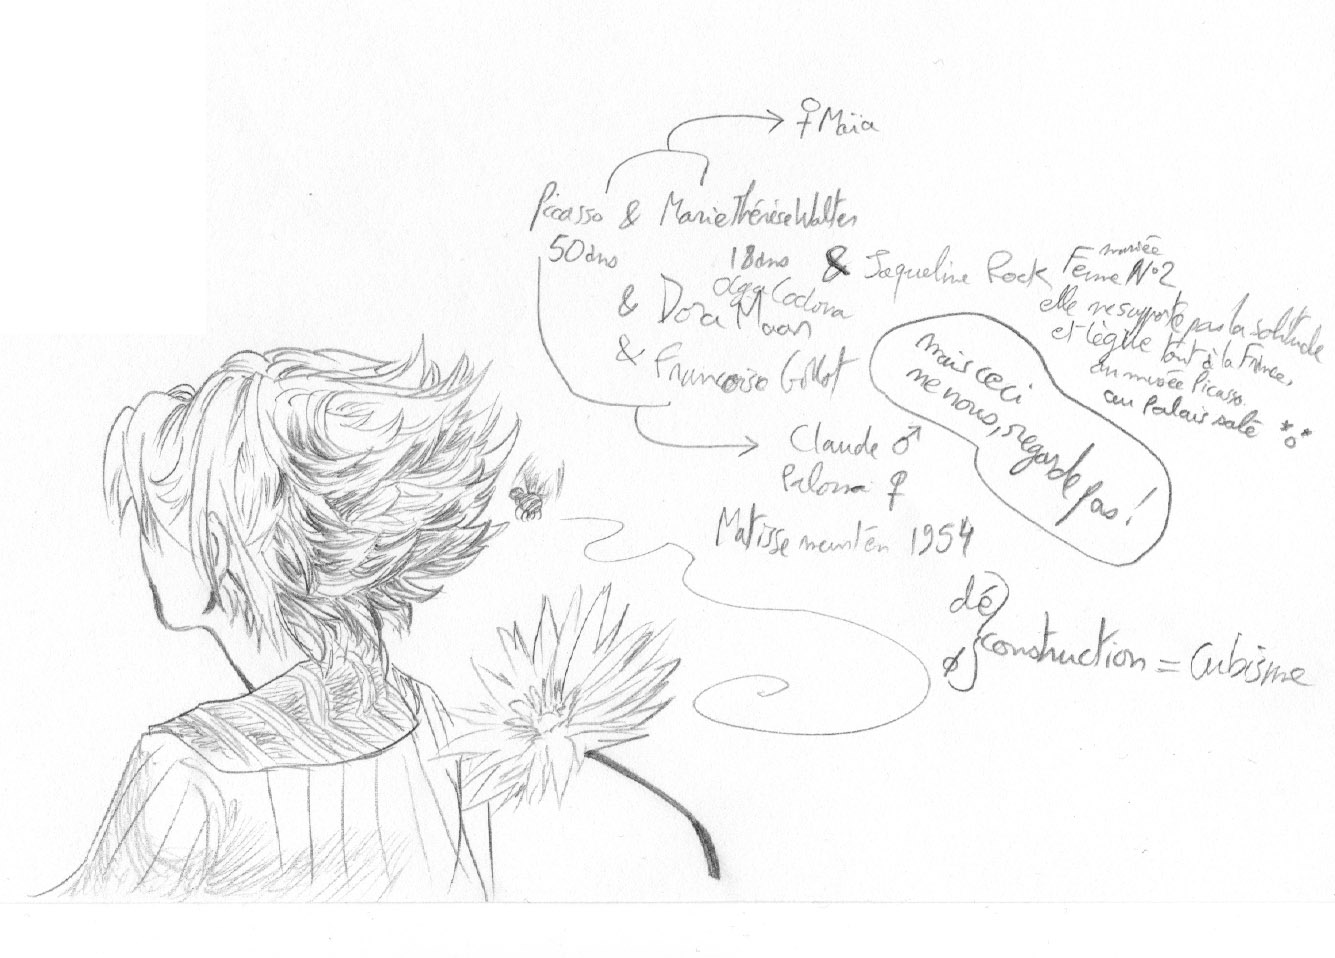 ♀ Maïa
Picasso & Marie Thérèse Walter
50 ans 18 ans & Jaqueline Rock Feme N°2
mariée
Olga Coclova
& Dora Maar
& Françoise Gillot
elle ne supporte pas la solitude
et lègue tout à la France,
au musée Picasso
au Palais salé
mais ceci
ne nous regarde pas !
Claude ♂
Paloma ♀
Matisse meurt en 1954
dé
construction = Cubisme